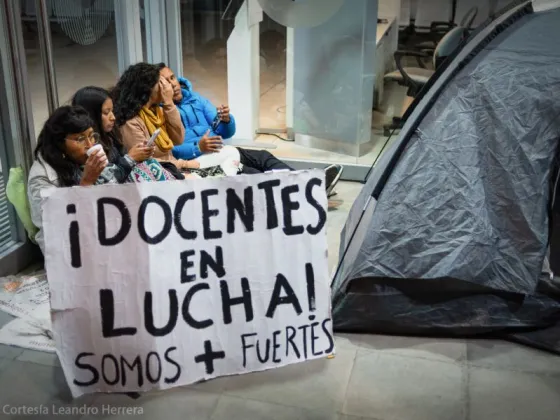 ¡DOCENTES
EN
LUCHA!
SOMOS + FUERTES
Cortesía Leandro Herrera